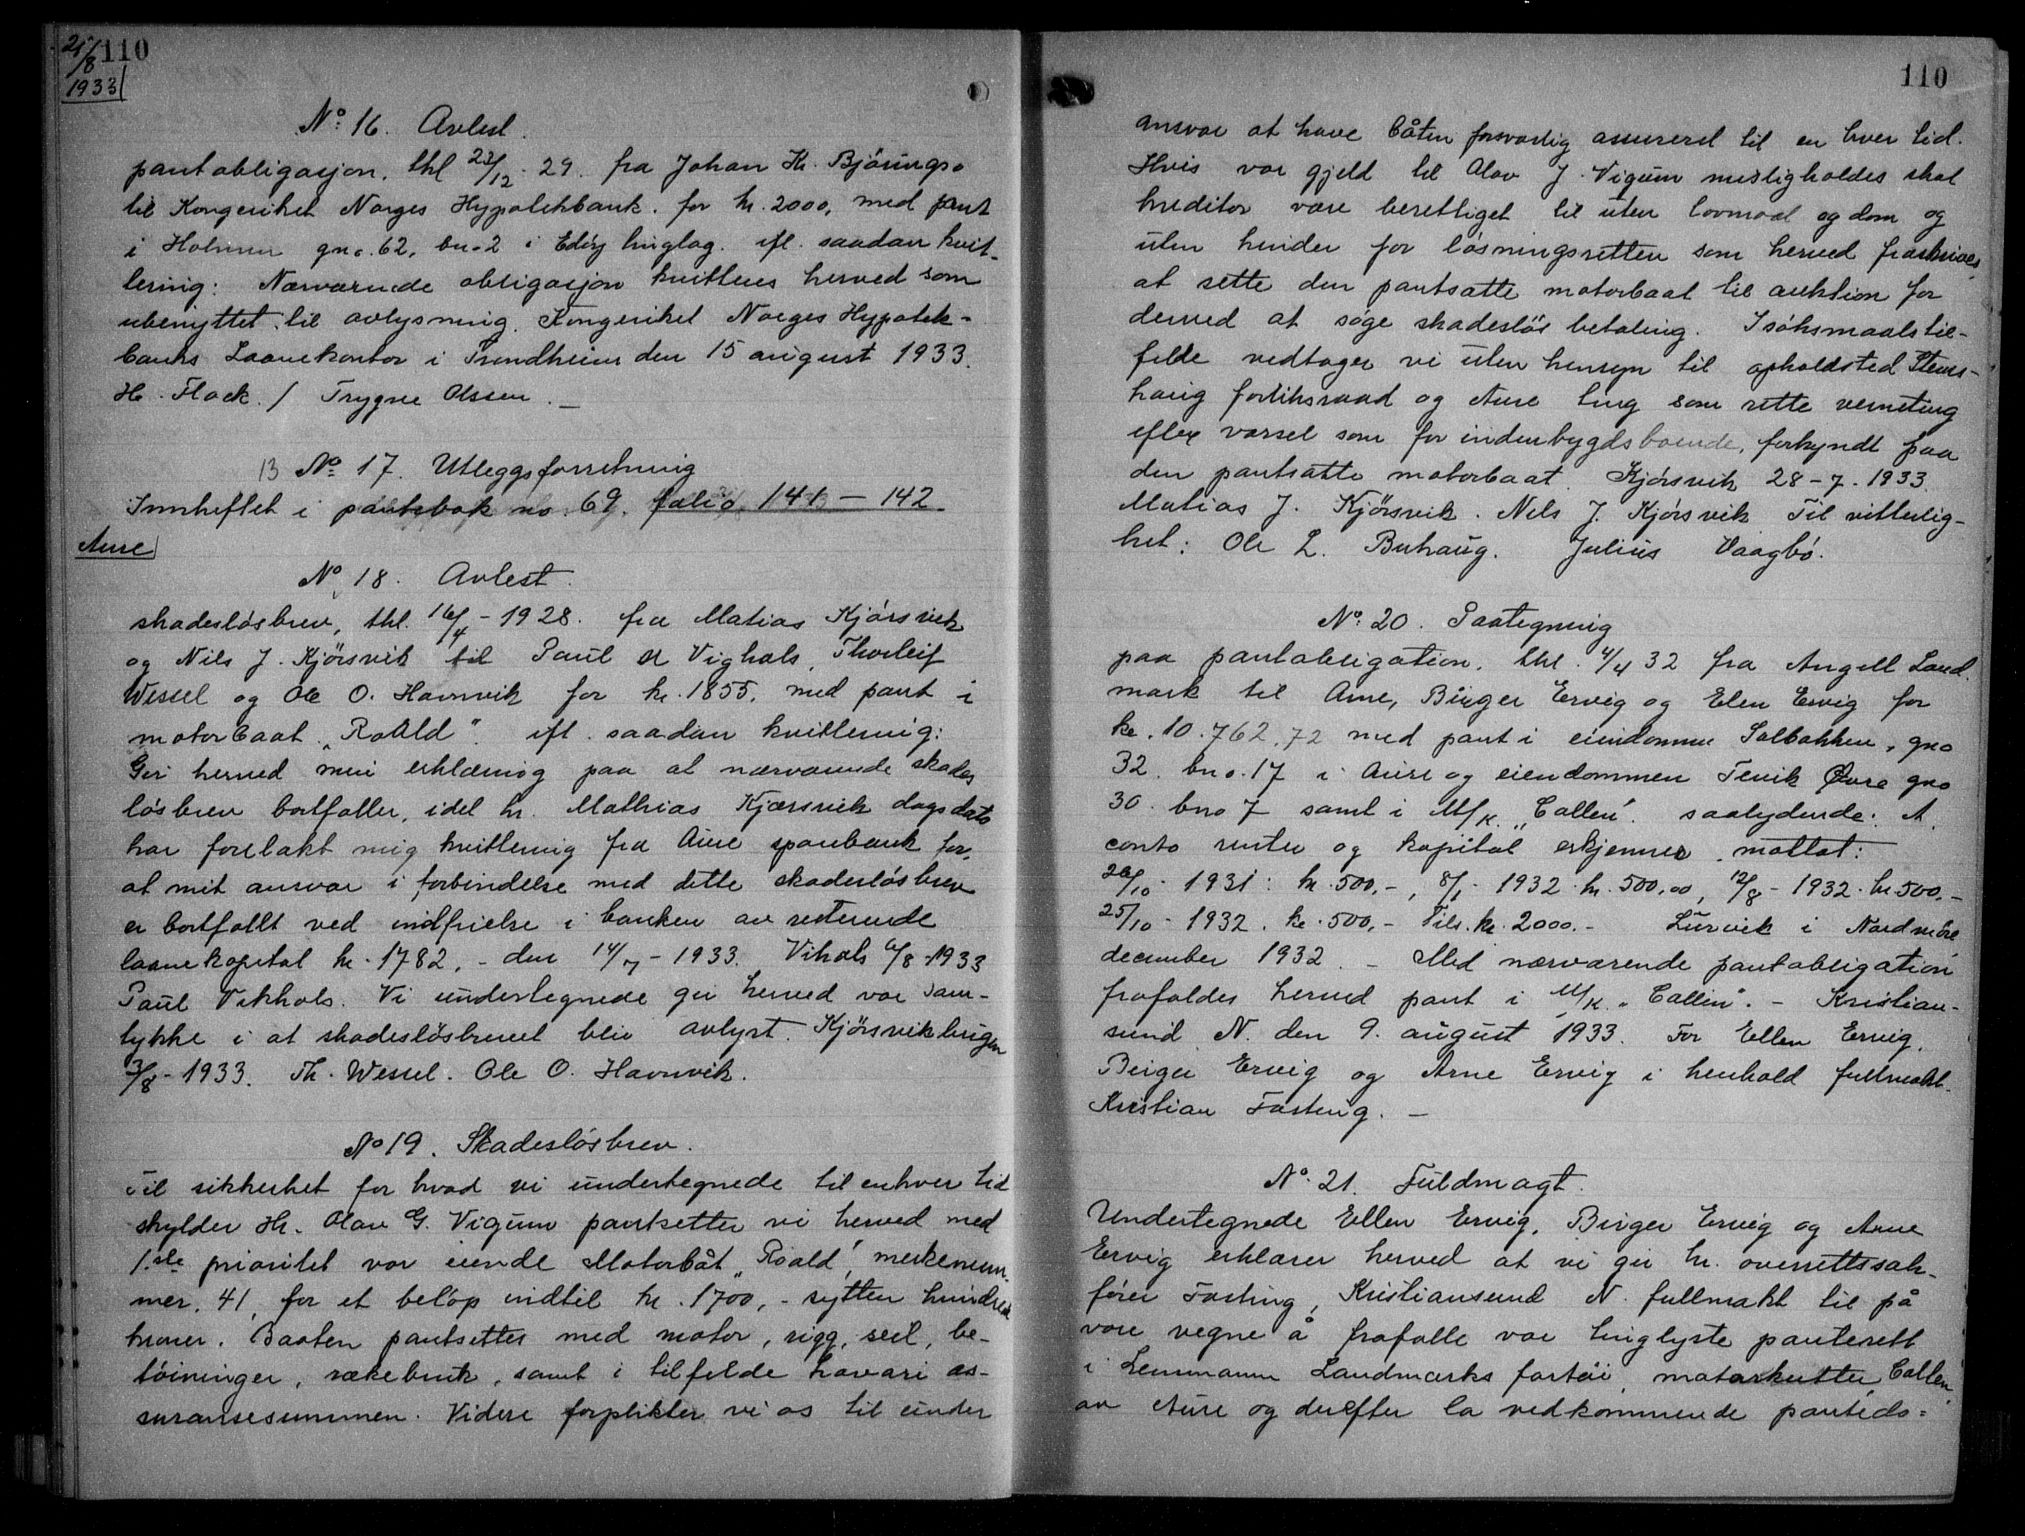 110
21/8
1933
No 16. Avlest.
pantobligasjon, thl 23/12 - 29. fra Johan Kr. Bjørungso
til Kongeriket Norges Hypotekbank. for kr. 2000, med pant
i Holmen gno. 62, bno 2 i Edøy tinglag. ifl. saadan kvit-
tering: Nærværende obligasjon kvitteres herved som
ubenyttet til avlysning. Kongeriket Norges Hypotek-
banks Laanekontor i Trondheim den 15 august 1933.
H. Flock. / Trygve Olssen. —
13 No 17. Utleggsforretning
Innheftet i pantebok no. 69. folio 141 — 142.
Aure
No 18. Avlest.
skadesløsbrev, thl. 16/4 - 1928. fra Matias Kjørsvik
og Nils J. Kjørsvik til Paul Vighals, Thorleif
Wessel og Ole O. Havnvik for kr. 1855, med pant i
motorbaat „Roald". ifl. saadan kvittering:
Gir herved min erklæring paa at nærværende skades
løsbrev bortfaller, idet hr. Mathias Kjærsvik dagsdato
har forelakt mig kvittering fra Aure sparebank for,
at mit ansvar i forbindelse med dette skadesløsbrev
er bortfallt ved indfrielse i banken av resterende
laanekapital kr. 1782, - den 14/7 - 1933. Vihals 6/8 - 1933
Paul Vikhals. Vi undertegnede gir herved vor sam-
tykke i at skadesløsbrevet blir avlyst. Kjørsvikbugen
3/8 - 1933. Th. Wessel. Ole O. Havnvik.
No 19. Skadesløsbrev.
Til sikkerhet for hvad vi undertegnede til enhver tid
skylder Hr. Olav G. Vigum pantsetter vi herved med
1.ste prioritet vor eiende Motorbåt „Roald", merkenum-
mer. 41, for et beløp indtil kr. 1700, - sytten hundrede
kroner. Baaten pantsettes med motor, rigg, seil, be-
tøininger, rækebruk, samt i tilfelde havari as-
suransesummen. Videre forplikter vi os til under
110
ansvar at have båten forsvarlig assurerd til en hver tid.
Hvis vor gjeld til Olav J. Vigum misligholdes skal
kreditor være berettiget til uten lovmaal og dom og
uten hinder for løsningsretten som herved fraskrives,
at sette den pantsatte motorbaat til auktion for
derved at søge skadesløs betaling. I søksmaalstil-
felde vedtager vi uten hensyn til opholdsted Stems-
haug forliksraad og Aure ting som rette verneting
efter varsel som for indenbygdsboende, forkyndt paa
den pantsatte motorbaat. Kjørsvik 28 - 7 - 1933.
Matias J. Kjörsvik. Nels J. Kjørsvik Til vitterlig-
het: Ole L. Buhaug. Julius Vaagbø.
No 20. Paategning
paa pantobligation, thl. 4/4 32 fra Angell Land.
mark til Arne, Birger Ervig og Elen Ervig for
kr. 10.762,72 med pant i eiendommen Solbakken, gno
32. bno. 17 i Aure og eiendommen Tevik Øvre gno
30. bno 7 samt i M/K. „Callen". saalydende: A.
conto renter og kapital erkjennes mottat:
26/10 - 1931: kr. 500,-, 8/1 - 1932 kr. 500,00, 12/8 - 1932. kr 500,-
25/10 - 1932. kr. 500,- Tils. kr. 2000.- Lurvik i Nordmøre
december 1932. - Med nærværende pantobligation
frafaldes herved pant i M/K. „Callen". - Kristian-
sund N. den 9. august 1933. For Ellen Ervig,
Birger Ervig og Arne Ervig i henhold fullmakt.
Kristian Fasting. —
No 21. Fuldmagt.
Undertegnede Ellen Ervig, Birger Ervig og Arne
Ervig erklærer herved at vi gir hr. overrettssak-
fører Fasting, Kristiansund N. fullmakt til på
vore vegne å frafalle vor tinglyste panterett
i Lensmann Landmarks fartøi, motorkutter „Callen"
av Aure og derefter la vedkommende panteds-